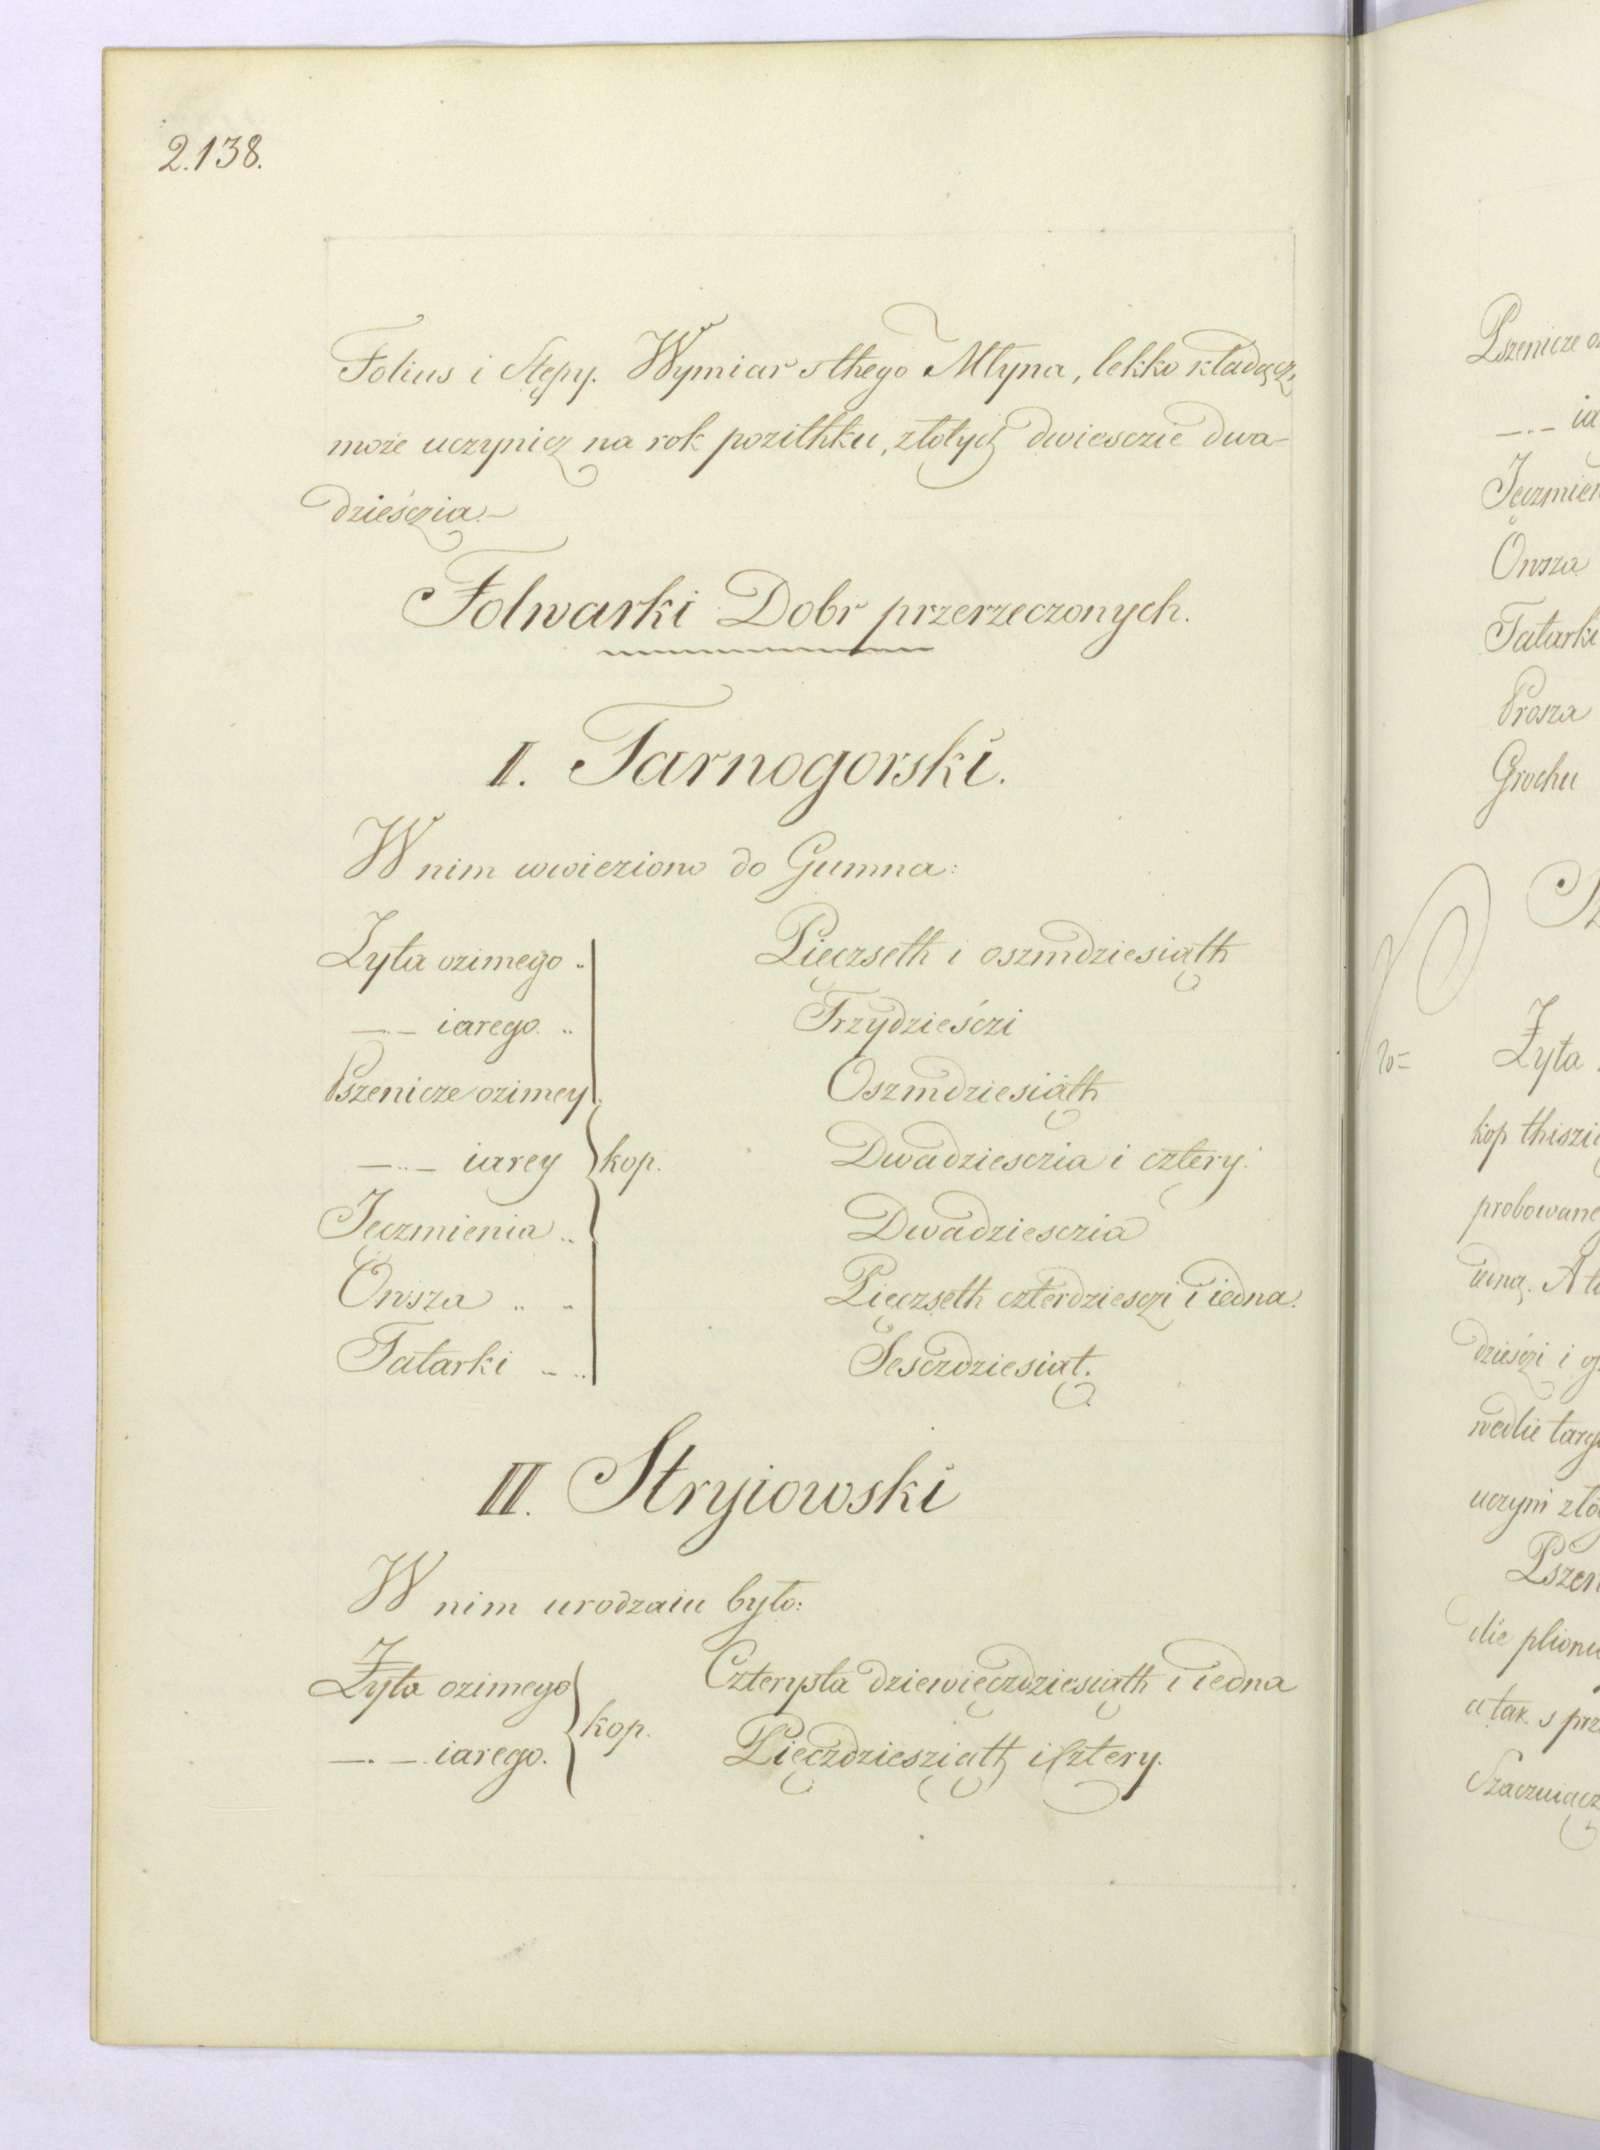 2.138.
Folius i Stępy. Wymiar sthego Młyna, lekko kładącz,
może uczynicz na rok pozithku, złotych dwiesczie dwa-
dzieśczia.—
Folwarki Dobr przerzeczonych.
I. Tarnogorski.
W nim wwieziono do Gumna:
Zyta ozimego .. Pięczseth i oszmdziesiąth
—.— iarego. .. Trzydzieśczi
Pszenicze ozimey Oszmdziesiąth
—..— iarey kop. Dwadziesczia i cztery.
Jęczmienia .. Dwadziesczia
Owsza .. .. Pięczseth czterdziesczi i iedna.
Tatarki .. .. Sesczdziesiąt.
II. Stryiowski
W nim urodzaiu było:
Żyta ozimego kop. Czterysta dziewięczdziesiąth i iedna
—.— iarego. Pięczdziesziąth i Cztery.
Pszenicze
—.—
Jęczmien
Owsza
Tatarki
Prosza
Grochu
Żyta
kop
probowane
A
dzieśczi i
wedlie
uczyni
a tak s